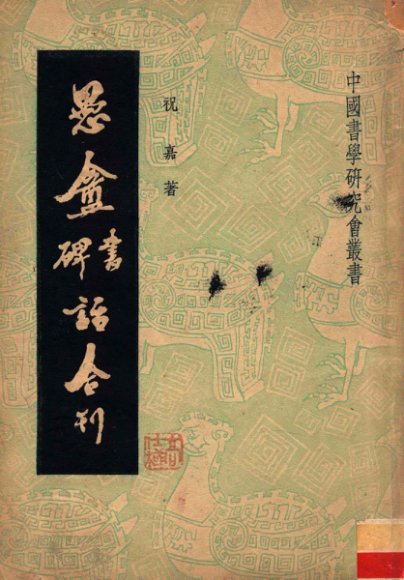 中國書學研究會叢書
祝嘉著
愚盦書碑話合刊